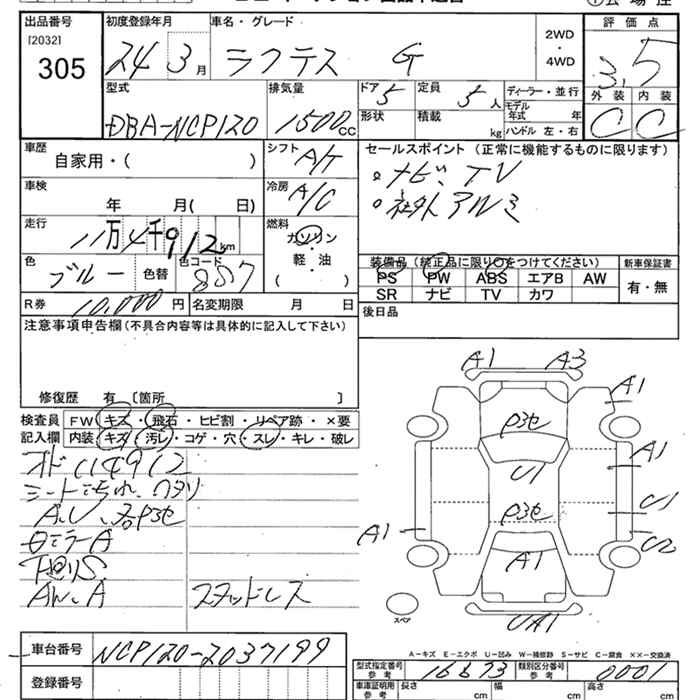 出品番号
[2032]
305
初度登録年月
24 3月
車名・グレード
ラクテス G
2WD
・
4WD
評価点
3.5
外装 内装
C C
型式
DBA-NCP120
排気量
1500cc
ドア 5
形状
定員 5人
積載 kg
ディーラー・並行
モデル年式 年
ハンドル 左・右
車歴
自家用・( )
シフト A/T
車検
年 月( 日)
冷房 A/C
走行
11万4千912km
燃料
ガソリン
軽・油
( )
色
ブルー 色替
色コード
8S7
R券 10,000円 名変期限 月 日
セールスポイント (正常に機能するものに限ります)
・ナビ、TV
・社外アルミ
装備品(純正品に限り○をつけてください)
PS PW ABS エアB AW
SR ナビ TV カワ
新車保証書
有・無
後日品
注意事項申告欄(不具合内容等は具体的に記入して下さい)
修復歴 有 [箇所 ]
検査員 FW キズ・飛石・ヒビ割・リペア跡・×要
記入欄 内装 キズ・汚レ・コゲ・穴・スレ・キレ・破レ
オド114912
シート
A.U
A
AW.A スタッドレス
A1 A3
A1
P3セ
U1
A1
P3セ
U1
A1
A1
U2
スペア
UA1
A-キズ E-エクボ U-凹み W-補修跡 S-サビ C-腐食 ××-交換済
車台番号 NCP120-2037199
登録番号
型式指定番号 参考 16673 類別区分番号 参考 0001
車庫証明用 参考 長さ cm 幅 cm 高さ cm